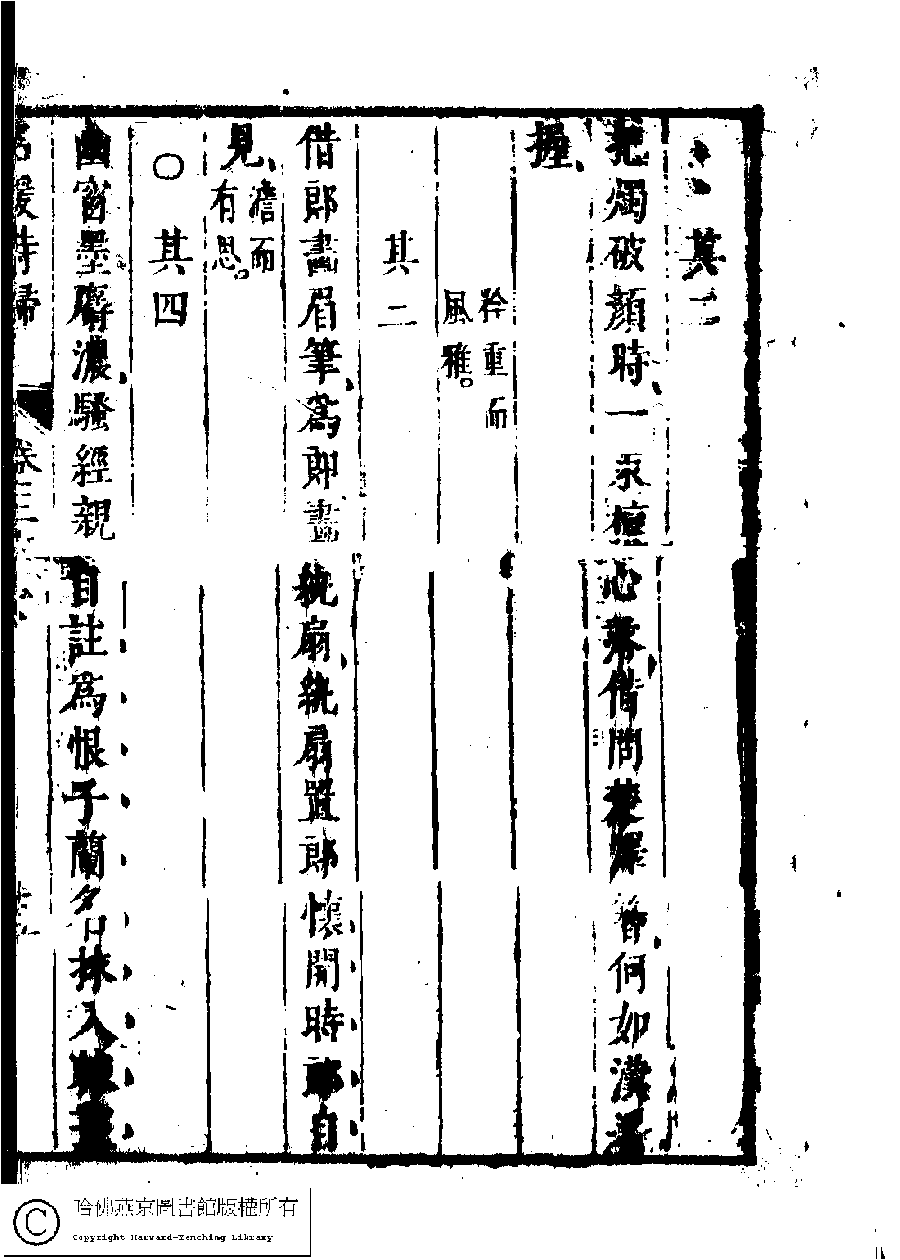 其二
把燭破顏時一承檀心蕚借問菱犀簪何如漢
握
矜重而
風雅。
其二
借郎畫眉筆為郎畫紈扇紈扇置郎懷開時郎自
見
澹而
有思。
○其四
幽窗墨麝濃騷經親自註為恨子蘭名抹入
名媛詩歸 卷三
哈佛燕京圖書館版權所有
Copyright Harvard-Yenching Library